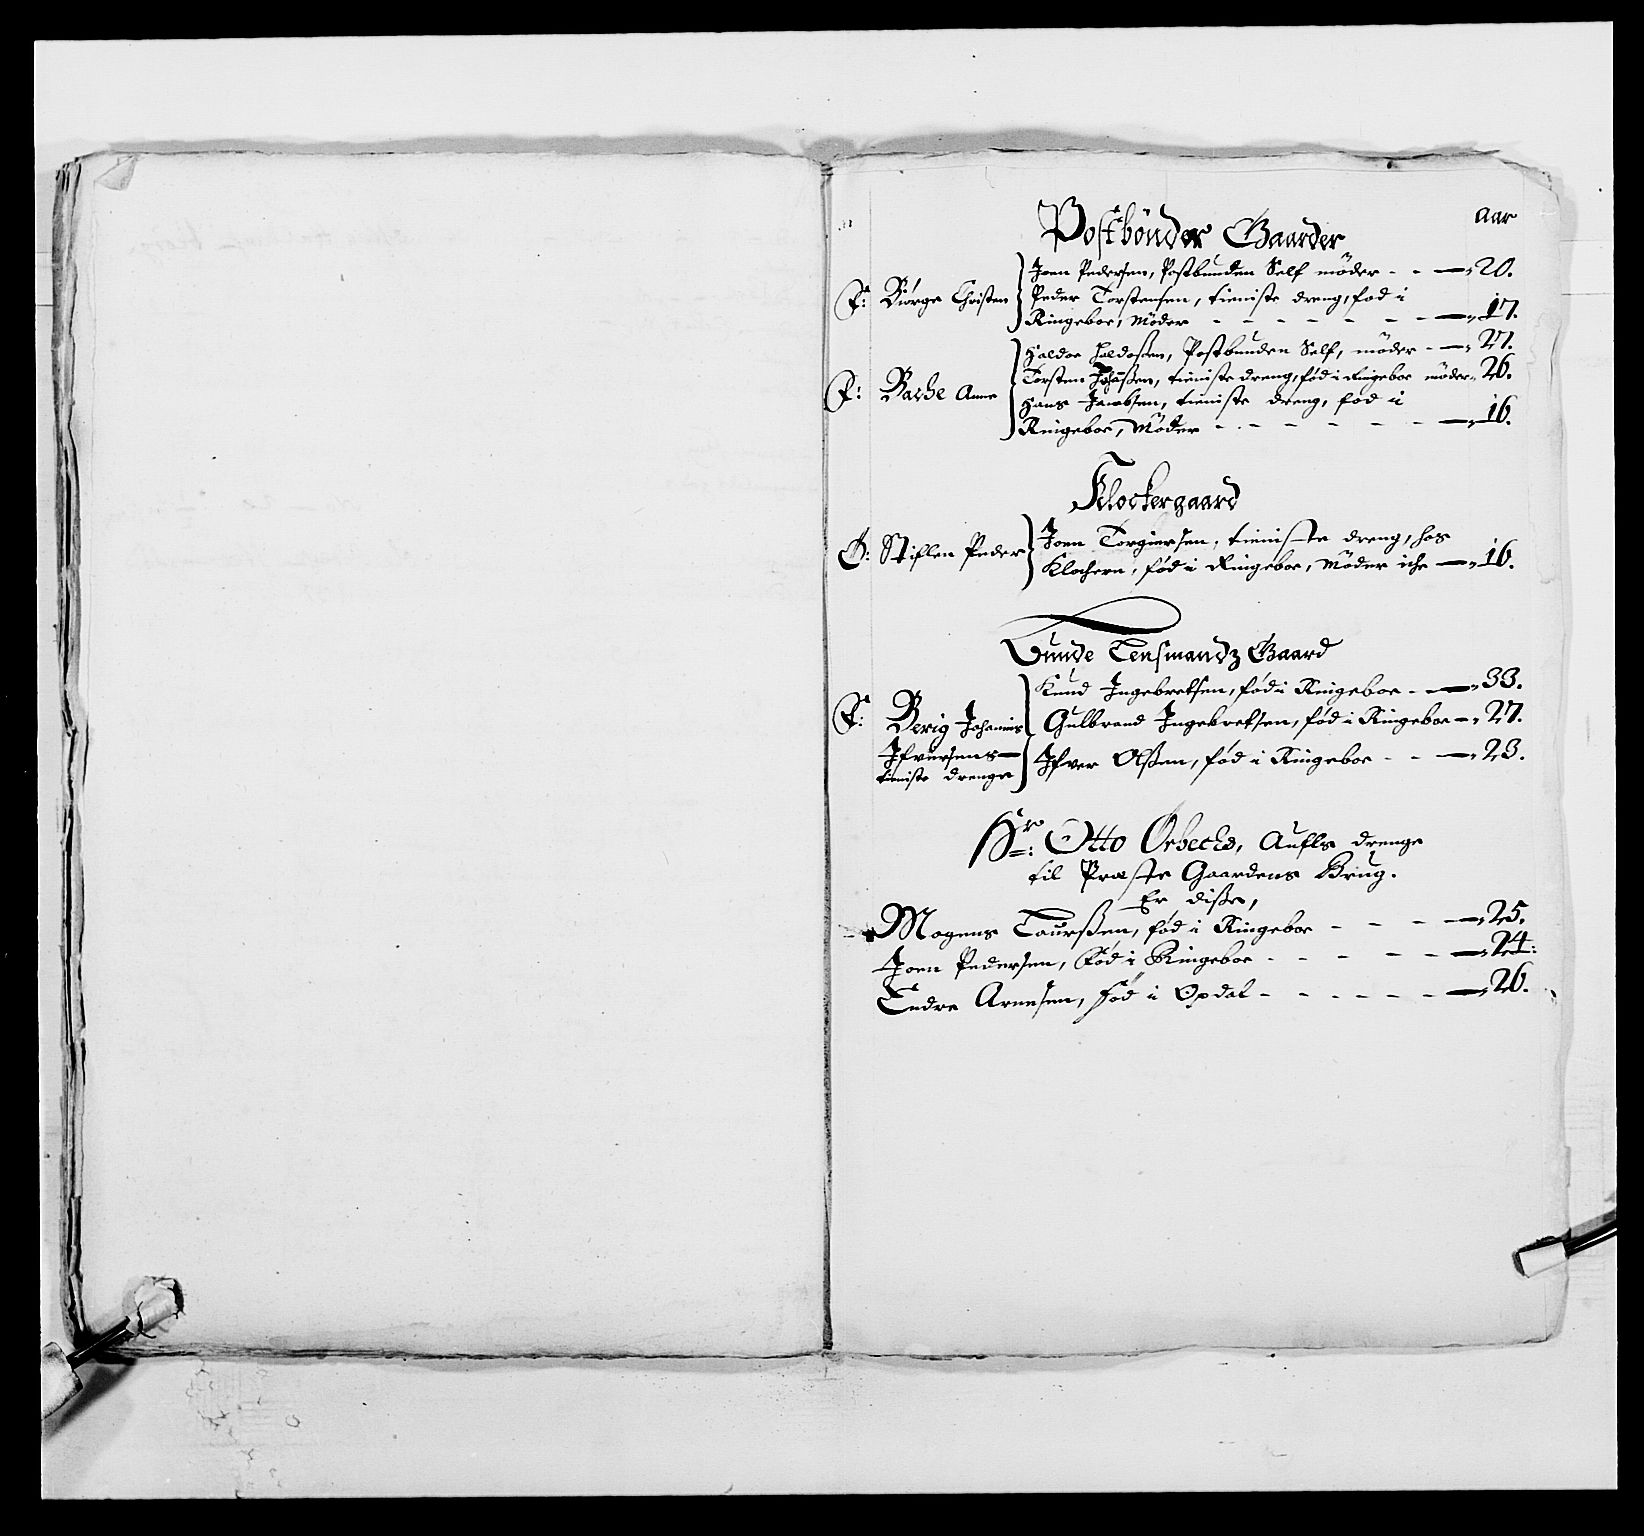 Aar
Postbönder Gaarder
F: Biørge Christen
Joen Pedersen, Postbunden Self möder - - 20.
Peder Torstensen, tieniste dreng, fød i
Ringeboe, Möder - - - - - - 17.
F: Bache Anne
Haldoe Haldoßen, Postbunden Self, möder - 27.
Torsten Johanßen, tieniste dreng, fød i Ringeboe möder - 26.
Hans Jacobsen, tieniste dreng, fød i
Ringeboe, Möder - - - - - - 16.
Klockergaard
Ø: Stiflen Peder
Joen Torgiersen, tieniste dreng, hos
Klockern, fød i Ringeboe, Möder iche - 16.
Lunde Lensmandz Gaard
F: Berig Johannis
Ifversens
tieniste drenge
Knud Ingebretsen, fød i Ringeboe - - 33.
Gulbrand Ingebretsen, fød i Ringeboe - 27.
Ifver Olßen, fød i Ringeboe - - - 23.
Hr: Otto Ørbechs, Aufls drenge
til Præste Gaardens Brug.
Er diße,
Mogens Taurßen, fød i Ringeboe - - - - 25.
Joen Pedersen, Fød i Ringeboe - - - - - 24:
Endre Arnesen, Fød i Opdal - - - - - - 26.